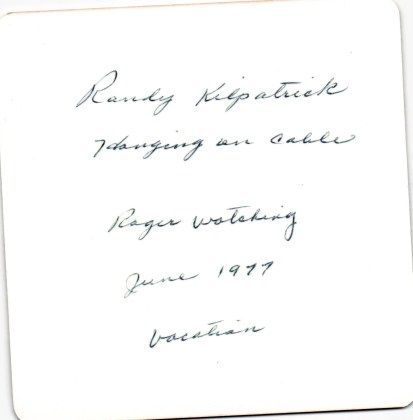 Randy Kilpatrick
Hanging on Cable
Roger watching
June 1977
Vacation